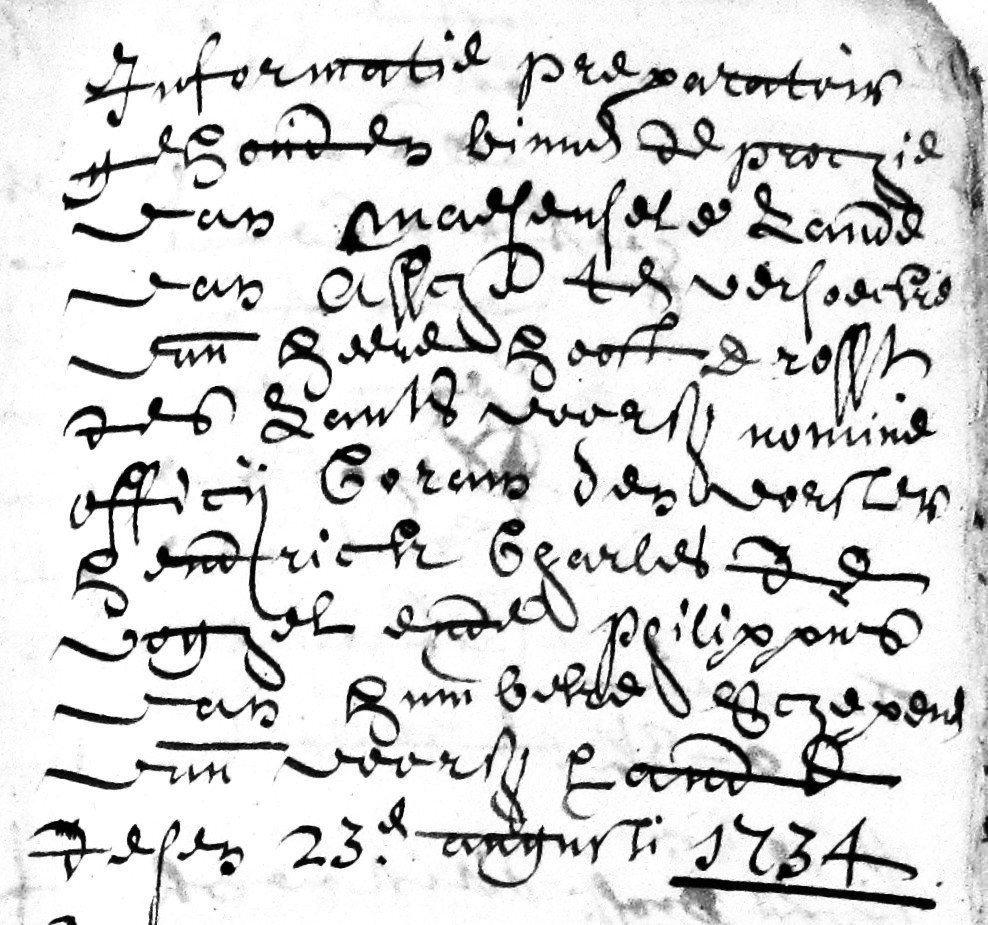 Informatie preparatoir
gehouden binnen de prochie
van Maesensele Lande
van Assche ten versoecke
van heere hooft drosst
des Lants voors nomine
officij Coram den vorster
hendrick Charles de
vogel ende philippus
van humbeke Schepene
van voors Lande
desen 23.e augusti 1734